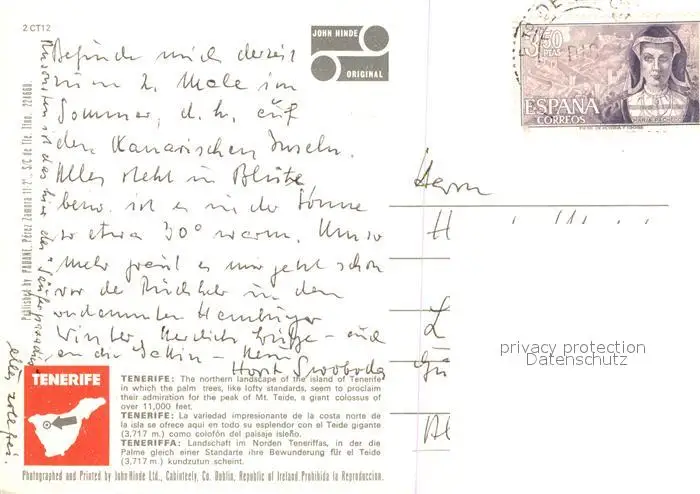 2 CT12
JOHN HINDE
ORIGINAL
3,50
PTAS
ESPAÑA
CORREOS
MARIA PACHECO
Befinde mich derzeit
zum 2. Male im
Sommer, d. h. auf
den Kanarischen Inseln.
Alles steht in Blüte
bzw. ist es in der Sonne
so etwa 30° warm. Umso
mehr graut es mir jetzt schon
vor der Rückkehr in den
Hamburger
Winter, Herzliche Grüsse – auch
an die Gattin –
Horst Swoboda
Ansonsten ist das hier der
Published by PADANE, Pérez Zamora 11 2°., S/C de Tfe. Tfno. 224660.
Herrn
H
L
Gü
privacy protection
Datenschutz
TENERIFE
TENERIFE: The northern landscape of the island of Tenerife
in which the palm trees, like lofty standards, seem to proclaim
their admiration for the peak of Mt. Teide, a giant colossus of
over 11,000 feet.
TENERIFE: La variedad impresionante de la costa norte de
la isla se ofrece aquí en todo su esplendor con el Teide gigante
(3,717 m.) como colofón del paisaje isleño.
TENERIFFA: Landschaft im Norden Teneriffas, in der die
Palme gleich einer Standarte ihre Bewunderung für el Teide
(3,717 m.) kundzutun scheint.
Photographed and Printed by John Hinde Ltd., Cabinteely, Co. Dublin, Republic of Ireland. Prohibida la Reproducción.